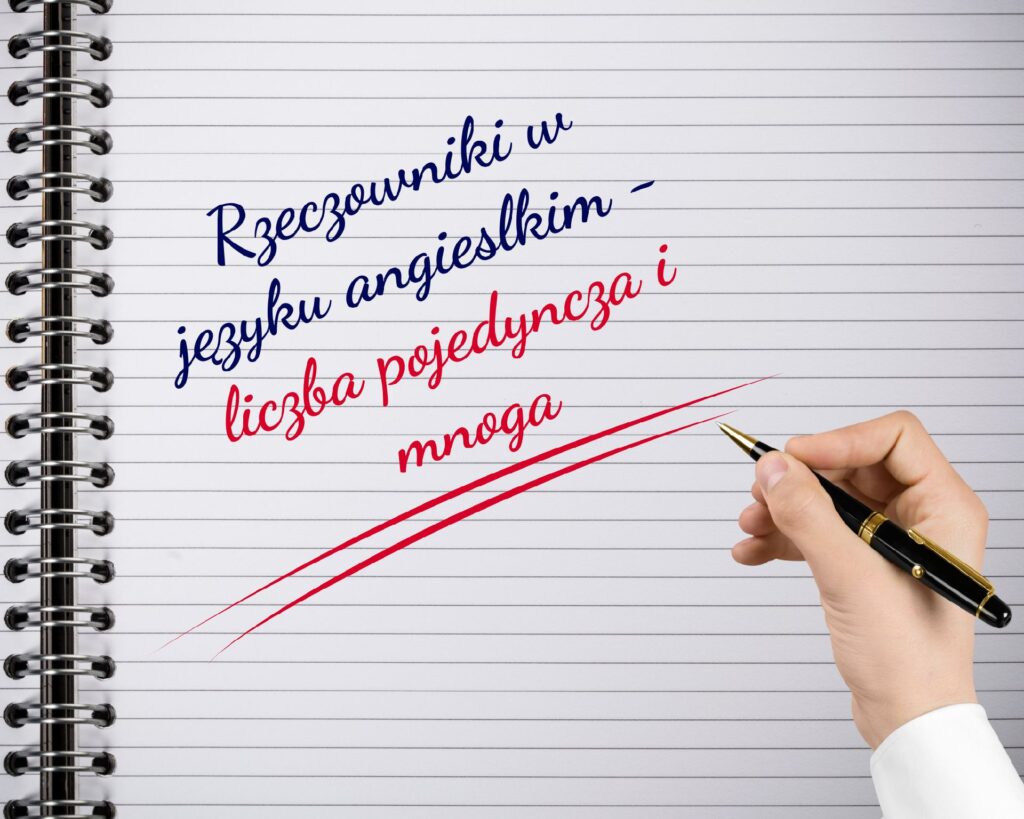 Rzeczowniki w
języku angieslkim -
liczba pojedyncza i
mnoga